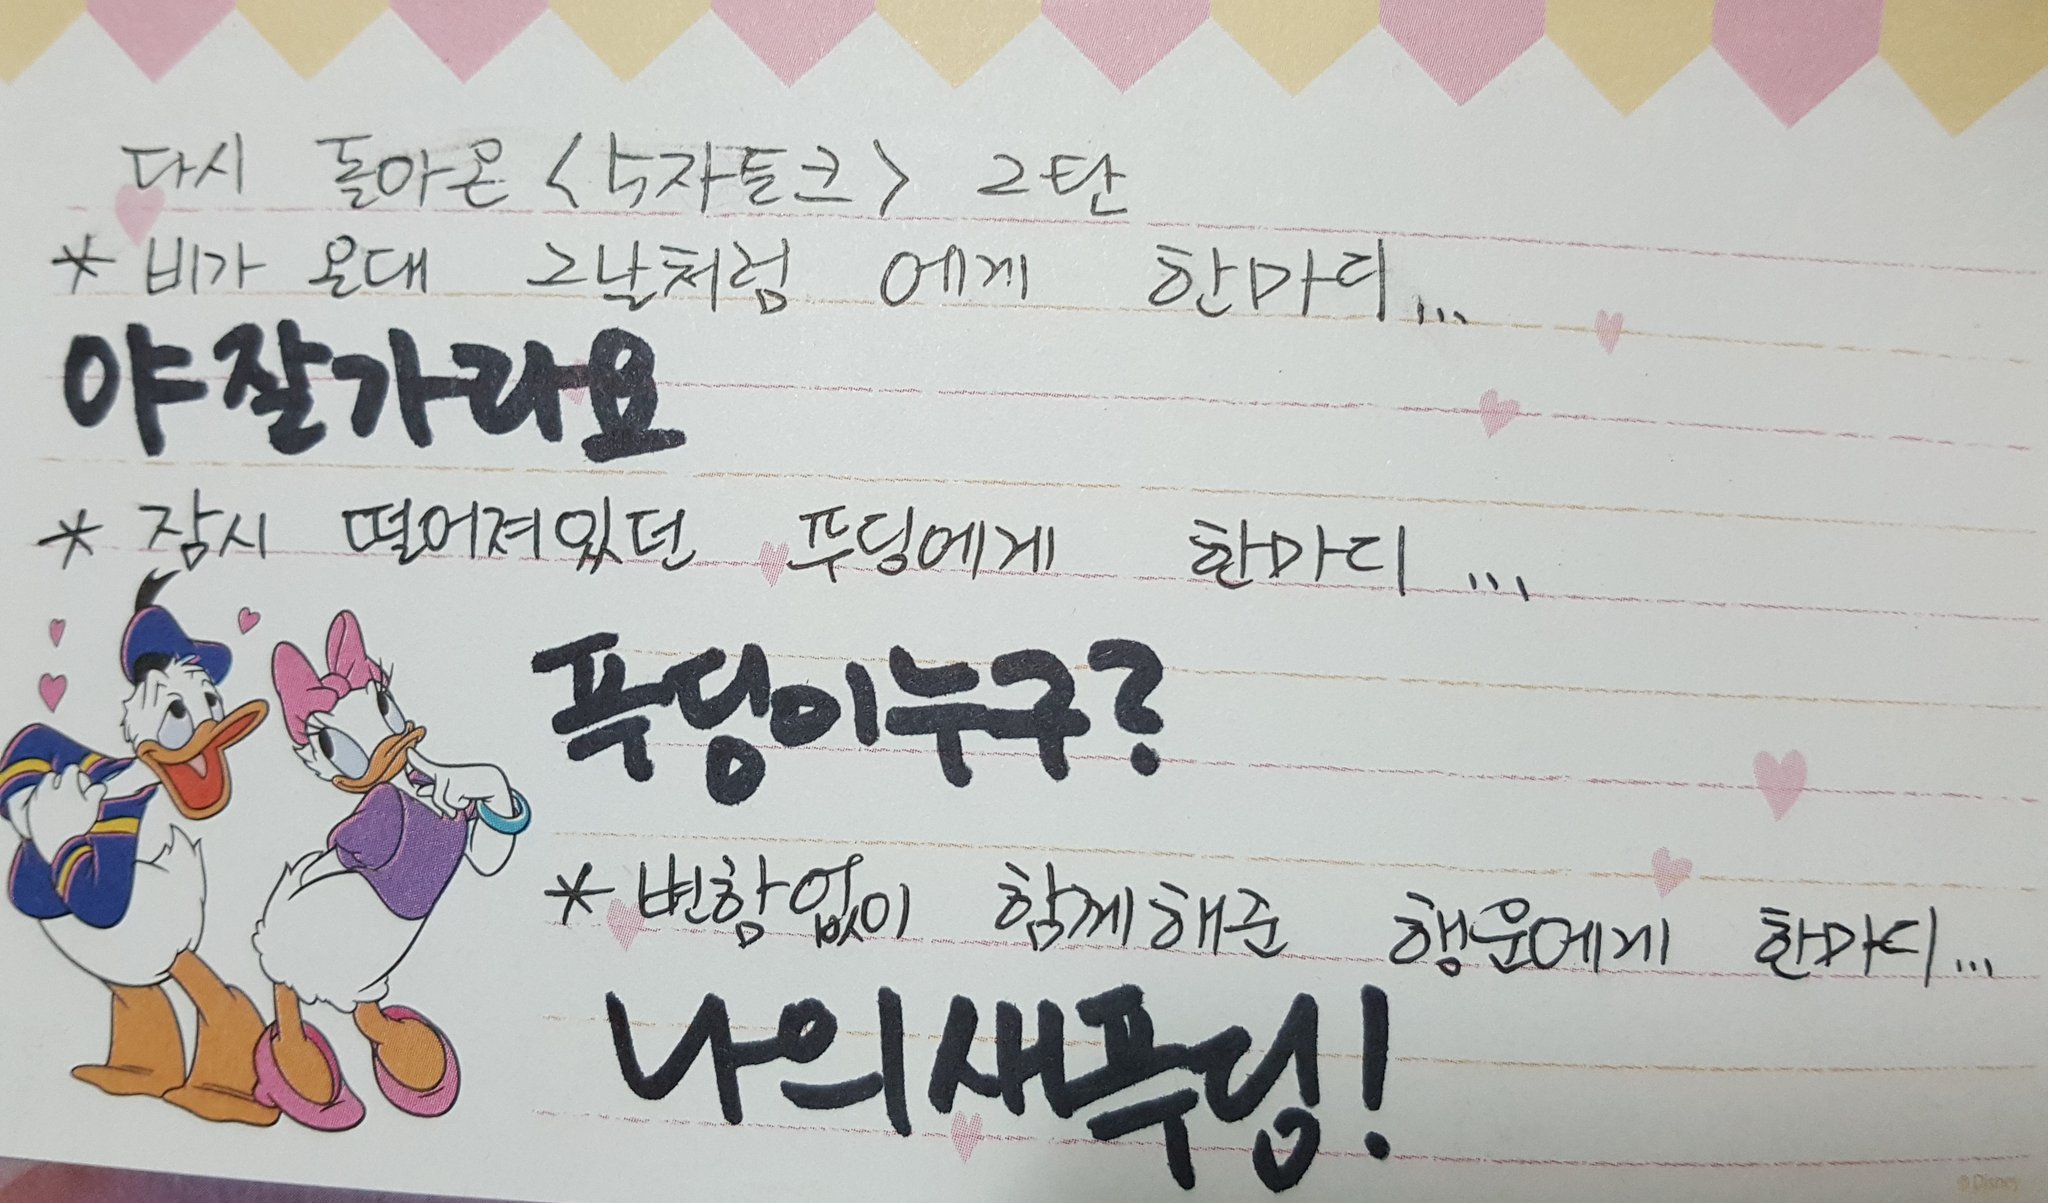 다시 돌아온 <5자토크> 2탄
* 비가 온대 그날처럼 에게 한마디...
야 잘가라요
* 잠시 떨어져있던 푸딩에게 한마디...
푸딩이누구?
* 변함없이 함께해준 행운에게 한마디...
나의새푸딩!
© Disney